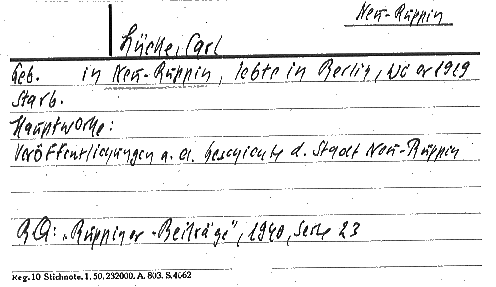 Neu-Ruppin
Lücke, Carl
Geb. in Neu-Ruppin, lebte in Berlin, wo er 1919
Starb.
Hauptworke:
Veröffentlichungen a. d. Geschichte d. Stadt Neu-Ruppin
RQ: „Ruppiner-Beiträge", 1940, Seite 23
Reg. 10 Stichnote. 1. 50. 232000. A. 803. S. 4662